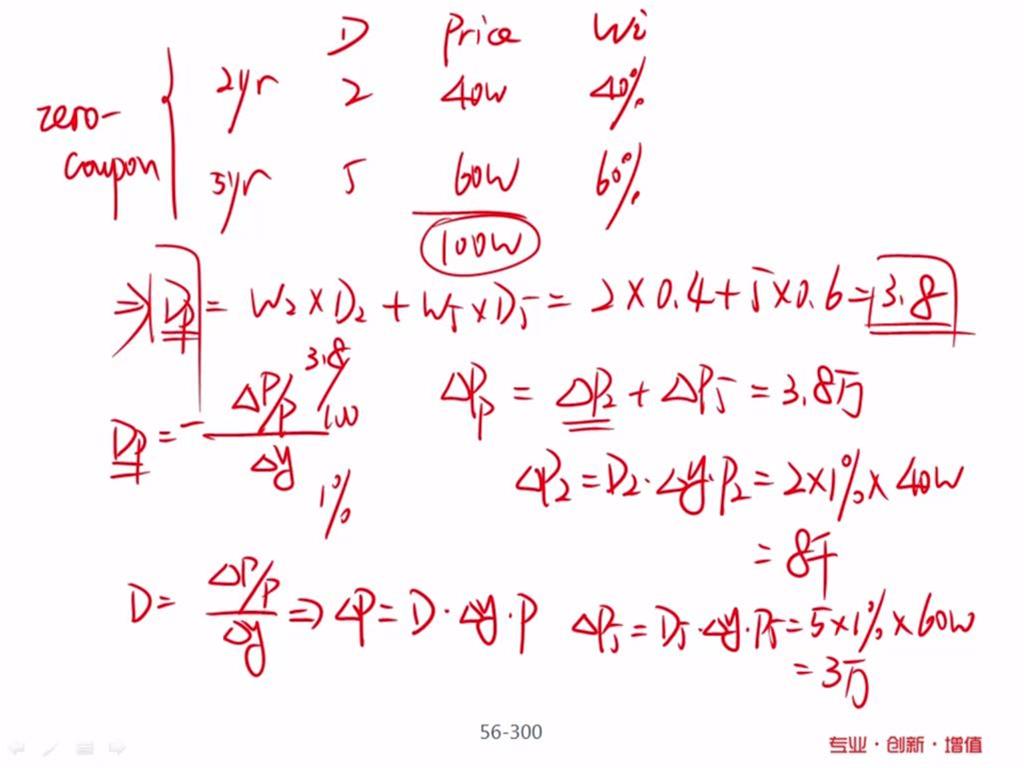 D Price Wi
zero-coupon { 2yr 2 40w 40%
5yr 5 60w 60%
100w
⇒ Dp = W₂ × D₂ + W₅ × D₅ = 2 × 0.4 + 5 × 0.6 = 3.8
Dp = - (ΔP/P) / Δy 3.8/100 1%
ΔPp = ΔP₂ + ΔP₅ = 3.8万
ΔP₂ = D₂·Δy·P₂ = 2×1%×40w
= 8千
D = (ΔP/P) / Δy ⇒ ΔP = D·Δy·P
ΔP₅ = D₅·Δy·P₅ = 5×1%×60w
= 3万
56-300
专业·创新·增值